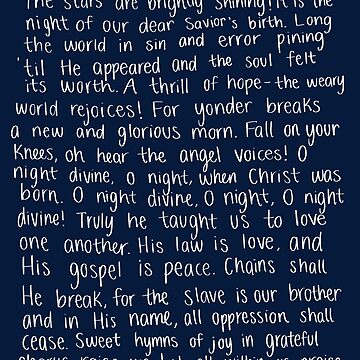 The stars are brightly shining! It is the
night of our dear Savior's birth. Long
the world in sin and error pining
'til He appeared and the soul felt
its worth. A thrill of hope-the weary
world rejoices! For yonder breaks
a new and glorious morn. Fall on your
Knees, oh hear the angel voices! O
night divine, O night, when Christ was
born. O night divine, O night, O night
divine! Truly he taught us to love
one another. His law is love, and
His gospel is peace. Chains shall
He break, for the slave is our brother
and in His name, all oppression shall
cease. Sweet hymns of joy in grateful